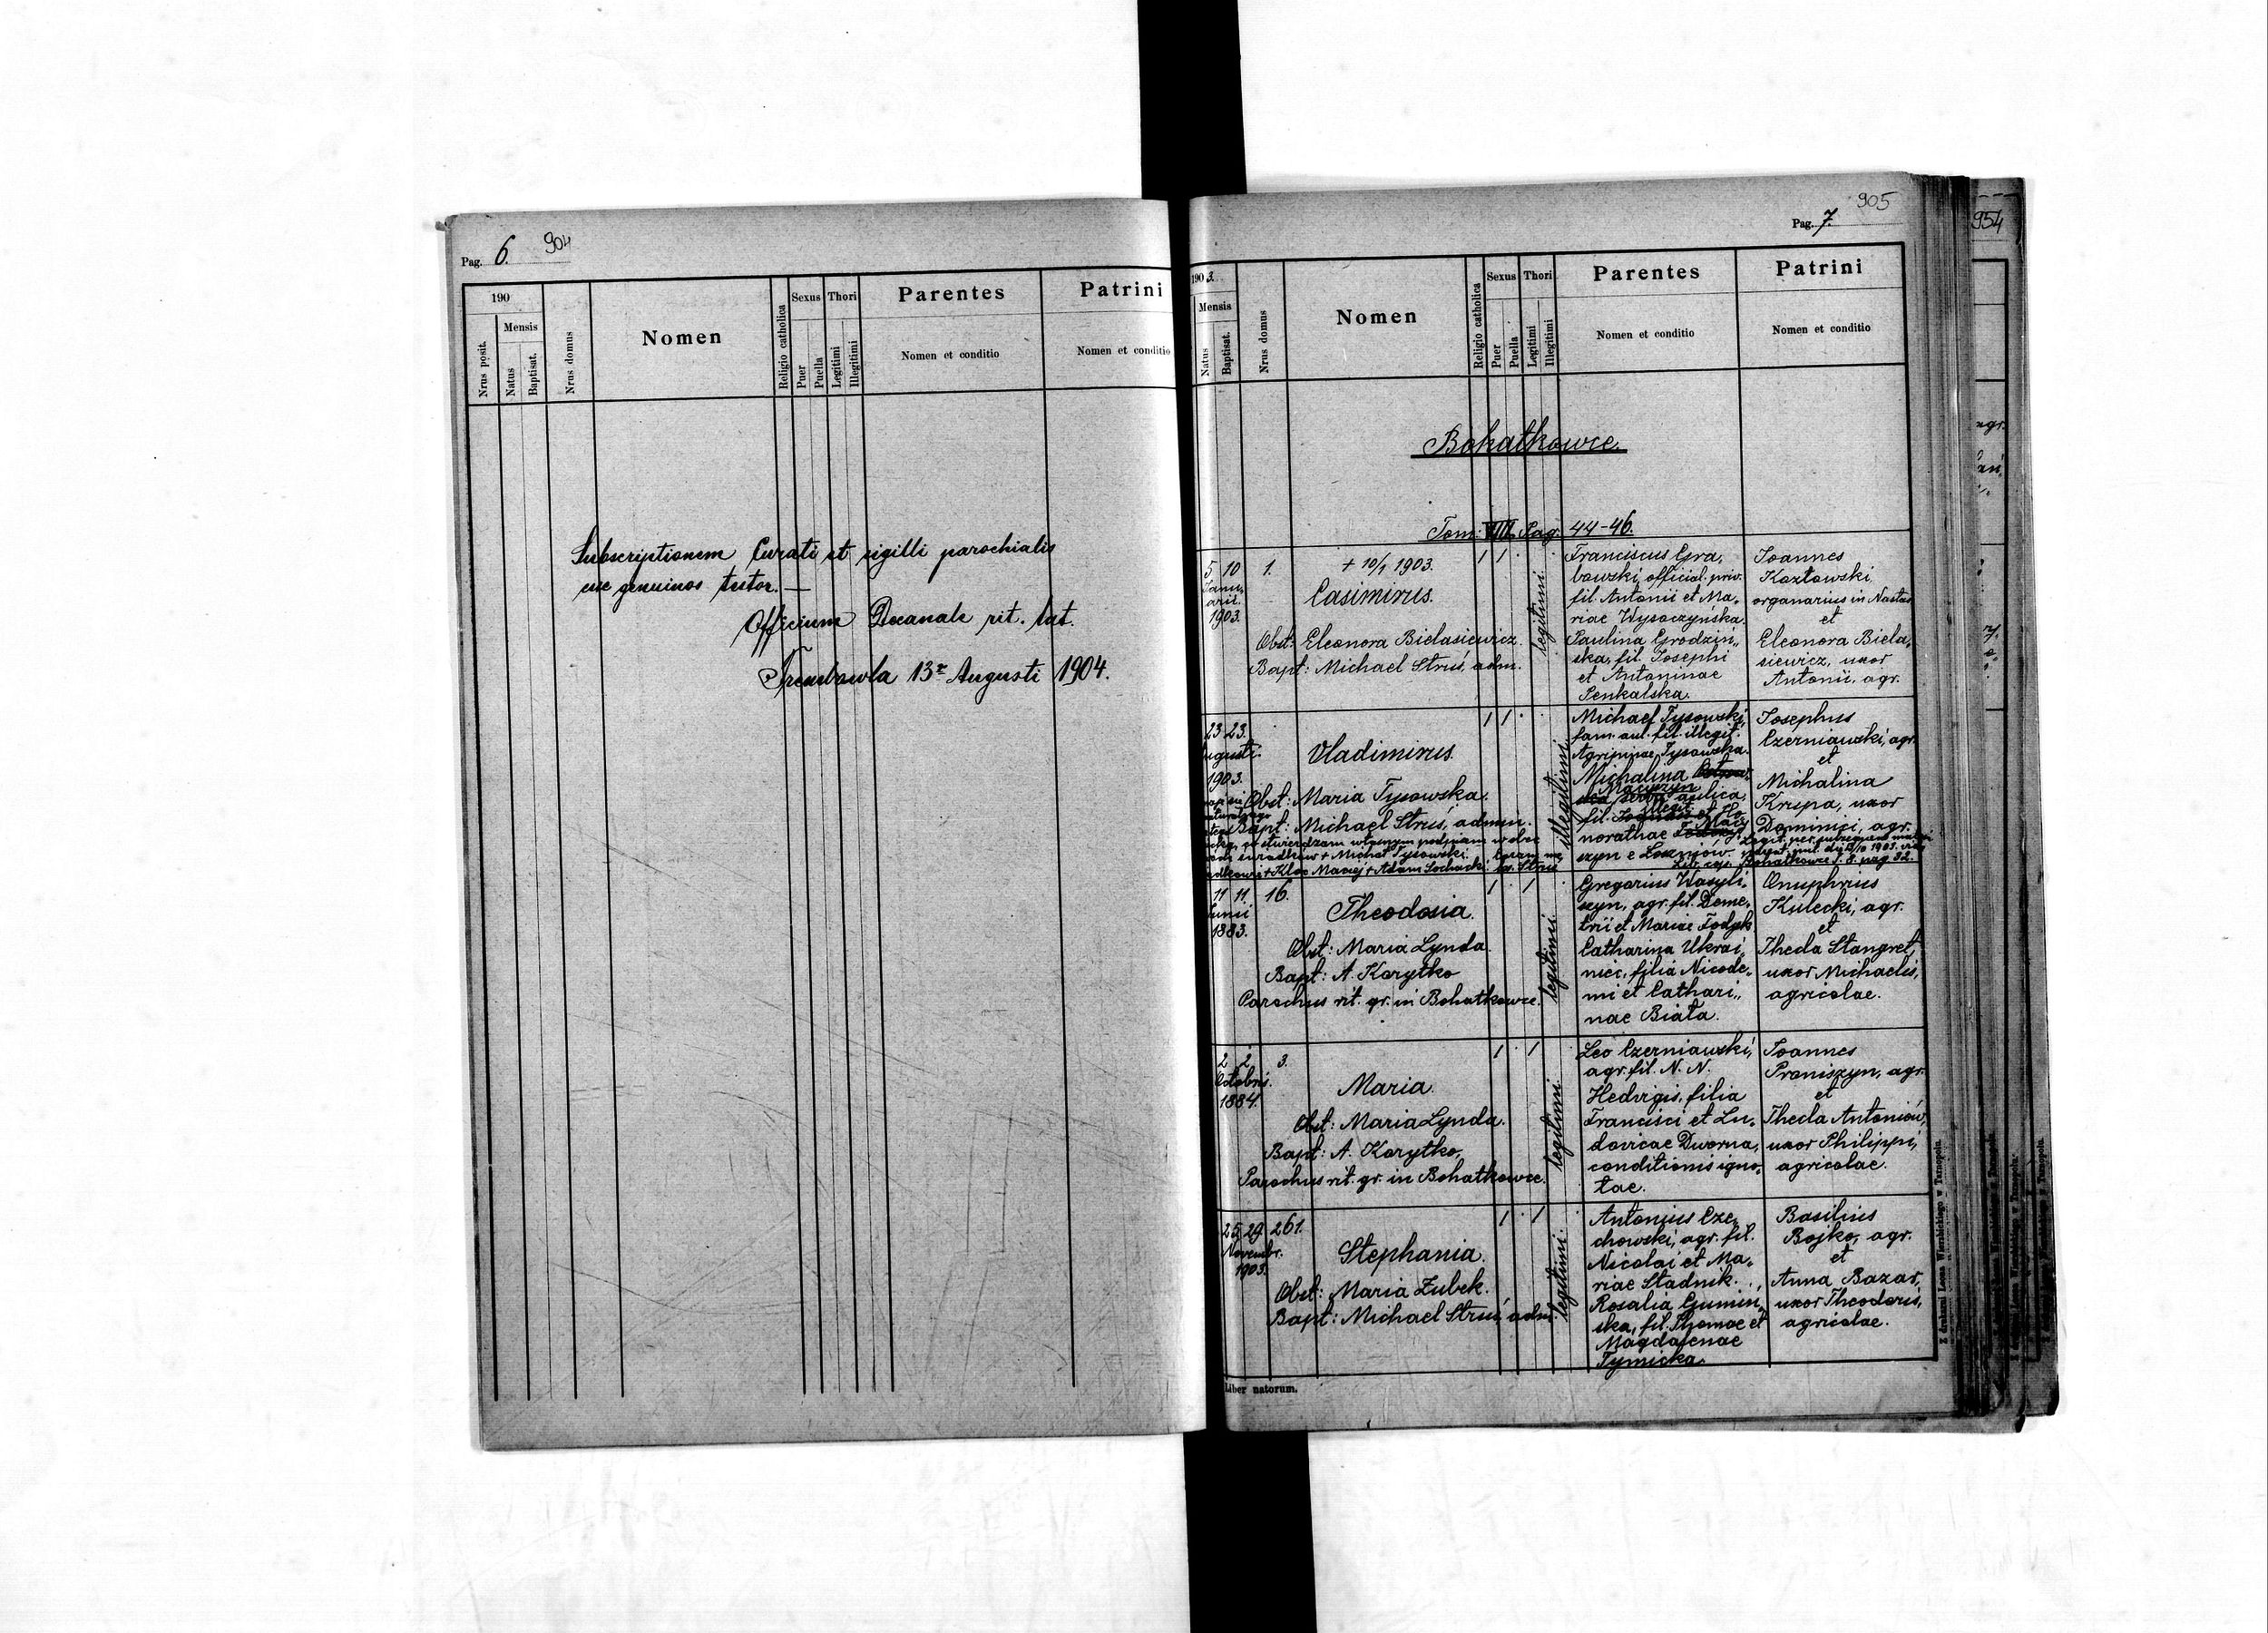 Pag. 6. 904
190
Nrus posit.
Mensis
Natus
Baptisat.
Nrus domus
Nomen
Religio catholica
Sexus
Puer
Puella
Thori
Legitimi
Illegitimi
Parentes
Nomen et conditio
Patrini
Nomen et conditio
Subscriptionem Curati et sigilli parochialis
esse genuinos testor. —
Officium Decanale rit. lat.
Trembowla 13 Augusti 1904.
905
Pag. 7.
1903.
Mensis
Natus
Baptisat.
Nrus domus
Nomen
Religio catholica
Sexus
Puer
Puella
Thori
Legitimi
Illegitimi
Parentes
Nomen et conditio
Patrini
Nomen et conditio
Bohatkowce.
Tom: VIII. Pag. 44-46.
5 10
Janu
arii.
1903.
1.
+ 10/1 1903.
Casimirus.
Obst: Eleonora Bielasiewicz
Bapt: Michael Struś, adm.
1 1
legitimi
Franciscus Gra,
bowski, official. priv.
fil. Antonii et Ma,
riae Wysoczyńska.
Paulina Grodziń,,
ska, fil. Josephi
et Antoninae
Senkalska.
Joannes
Kozłowski,
organarius in Nastas
et
Eleonora Biela,
siewicz, uxor
Antonii, agr.
23 23.
ugusti.
1903.
Vladimirus.
Obst: Maria Tysowska.
Bapt: Michael Struś, admin.
stwierdzam własnym podpisem wobec
świadków + Michał Tysowski.
+ Kloc Maciej + Adam Sochacki
1 1
illegitimi
Michael Tysowski,
fam. aul. fil. illegit.
Agripinae Tysowska.
Michalina
Macyszyn
aulica,
fil. illegit.
norathae Macy
szyn e Łoszniów.
Josephus
Czerniawski, agr.
et
Michalina
Krupa, uxor
Dominici, agr.
Legit. per subsequens matri
Bohatkowce T. 8. pag 32.
11 11.
Junii
1883.
16.
Theodosia.
Obst: Maria Lynda.
Bapt: A. Korytko
Parochus rit. gr. in Bohatkowce.
1 1
legitimi
Gregorius Wasyli,
szyn, agr. fil. Deme,
trii et Mariae Fodyk
Catharina Ukrai,
niec, filia Nicode,
mi et Cathari,,
nae Biała.
Onuphrius
Kulecki, agr.
et
Thecla Stangret,
uxor Michaelis,
agricolae.
2 2
Octobris.
1884.
3.
Maria.
Obst: Maria Lynda.
Bapt: A. Korytko,
Parochus rit. gr. in Bohatkowce.
1 1
legitimi
Leo Czerniawski,
agr. fil. N. N.
Hedvigis, filia
Francisci et Lu,
dovicae Dworna,
conditionis igno,
tae.
Joannes
Proniszyn, agr.
et
Thecla Antoniów,
uxor Philippi,
agricolae.
25 29.
Novembr.
1903.
261.
Stephania.
Obst: Maria Zubek.
Bapt: Michael Struś, adm.
1 1
legitimi
Antonius Cze,
chowski, agr. fil.
Nicolai et Ma,
riae Stadnik.
Rosalia Gumiń,
ska, fil. Thomae et
Magdalenae
Tymicka.
Basilius
Bojko, agr.
et
Anna Bazar,
uxor Theodoris,
agricolae.
Liber natorum.
Z drukarni Leona Wierzbickiego w Tarnopolu.
954